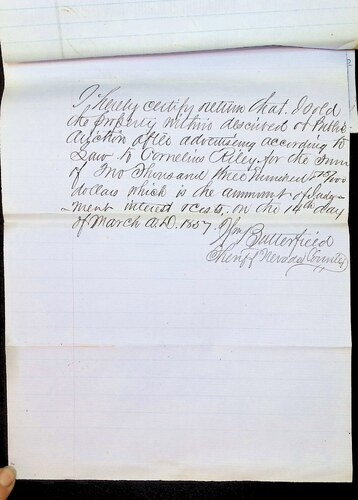 I hereby certify return that I sold
the property within described at Public
Auction after advertising according to
Law to Cornelius Riley for the Sum
of Two Thousand three hundred /100
dollars which is the ammount of Judg-
-ment interest & costs, on the 14th day
of March A.D. 1857. Wm Butterfield
Sheriff Nevada County